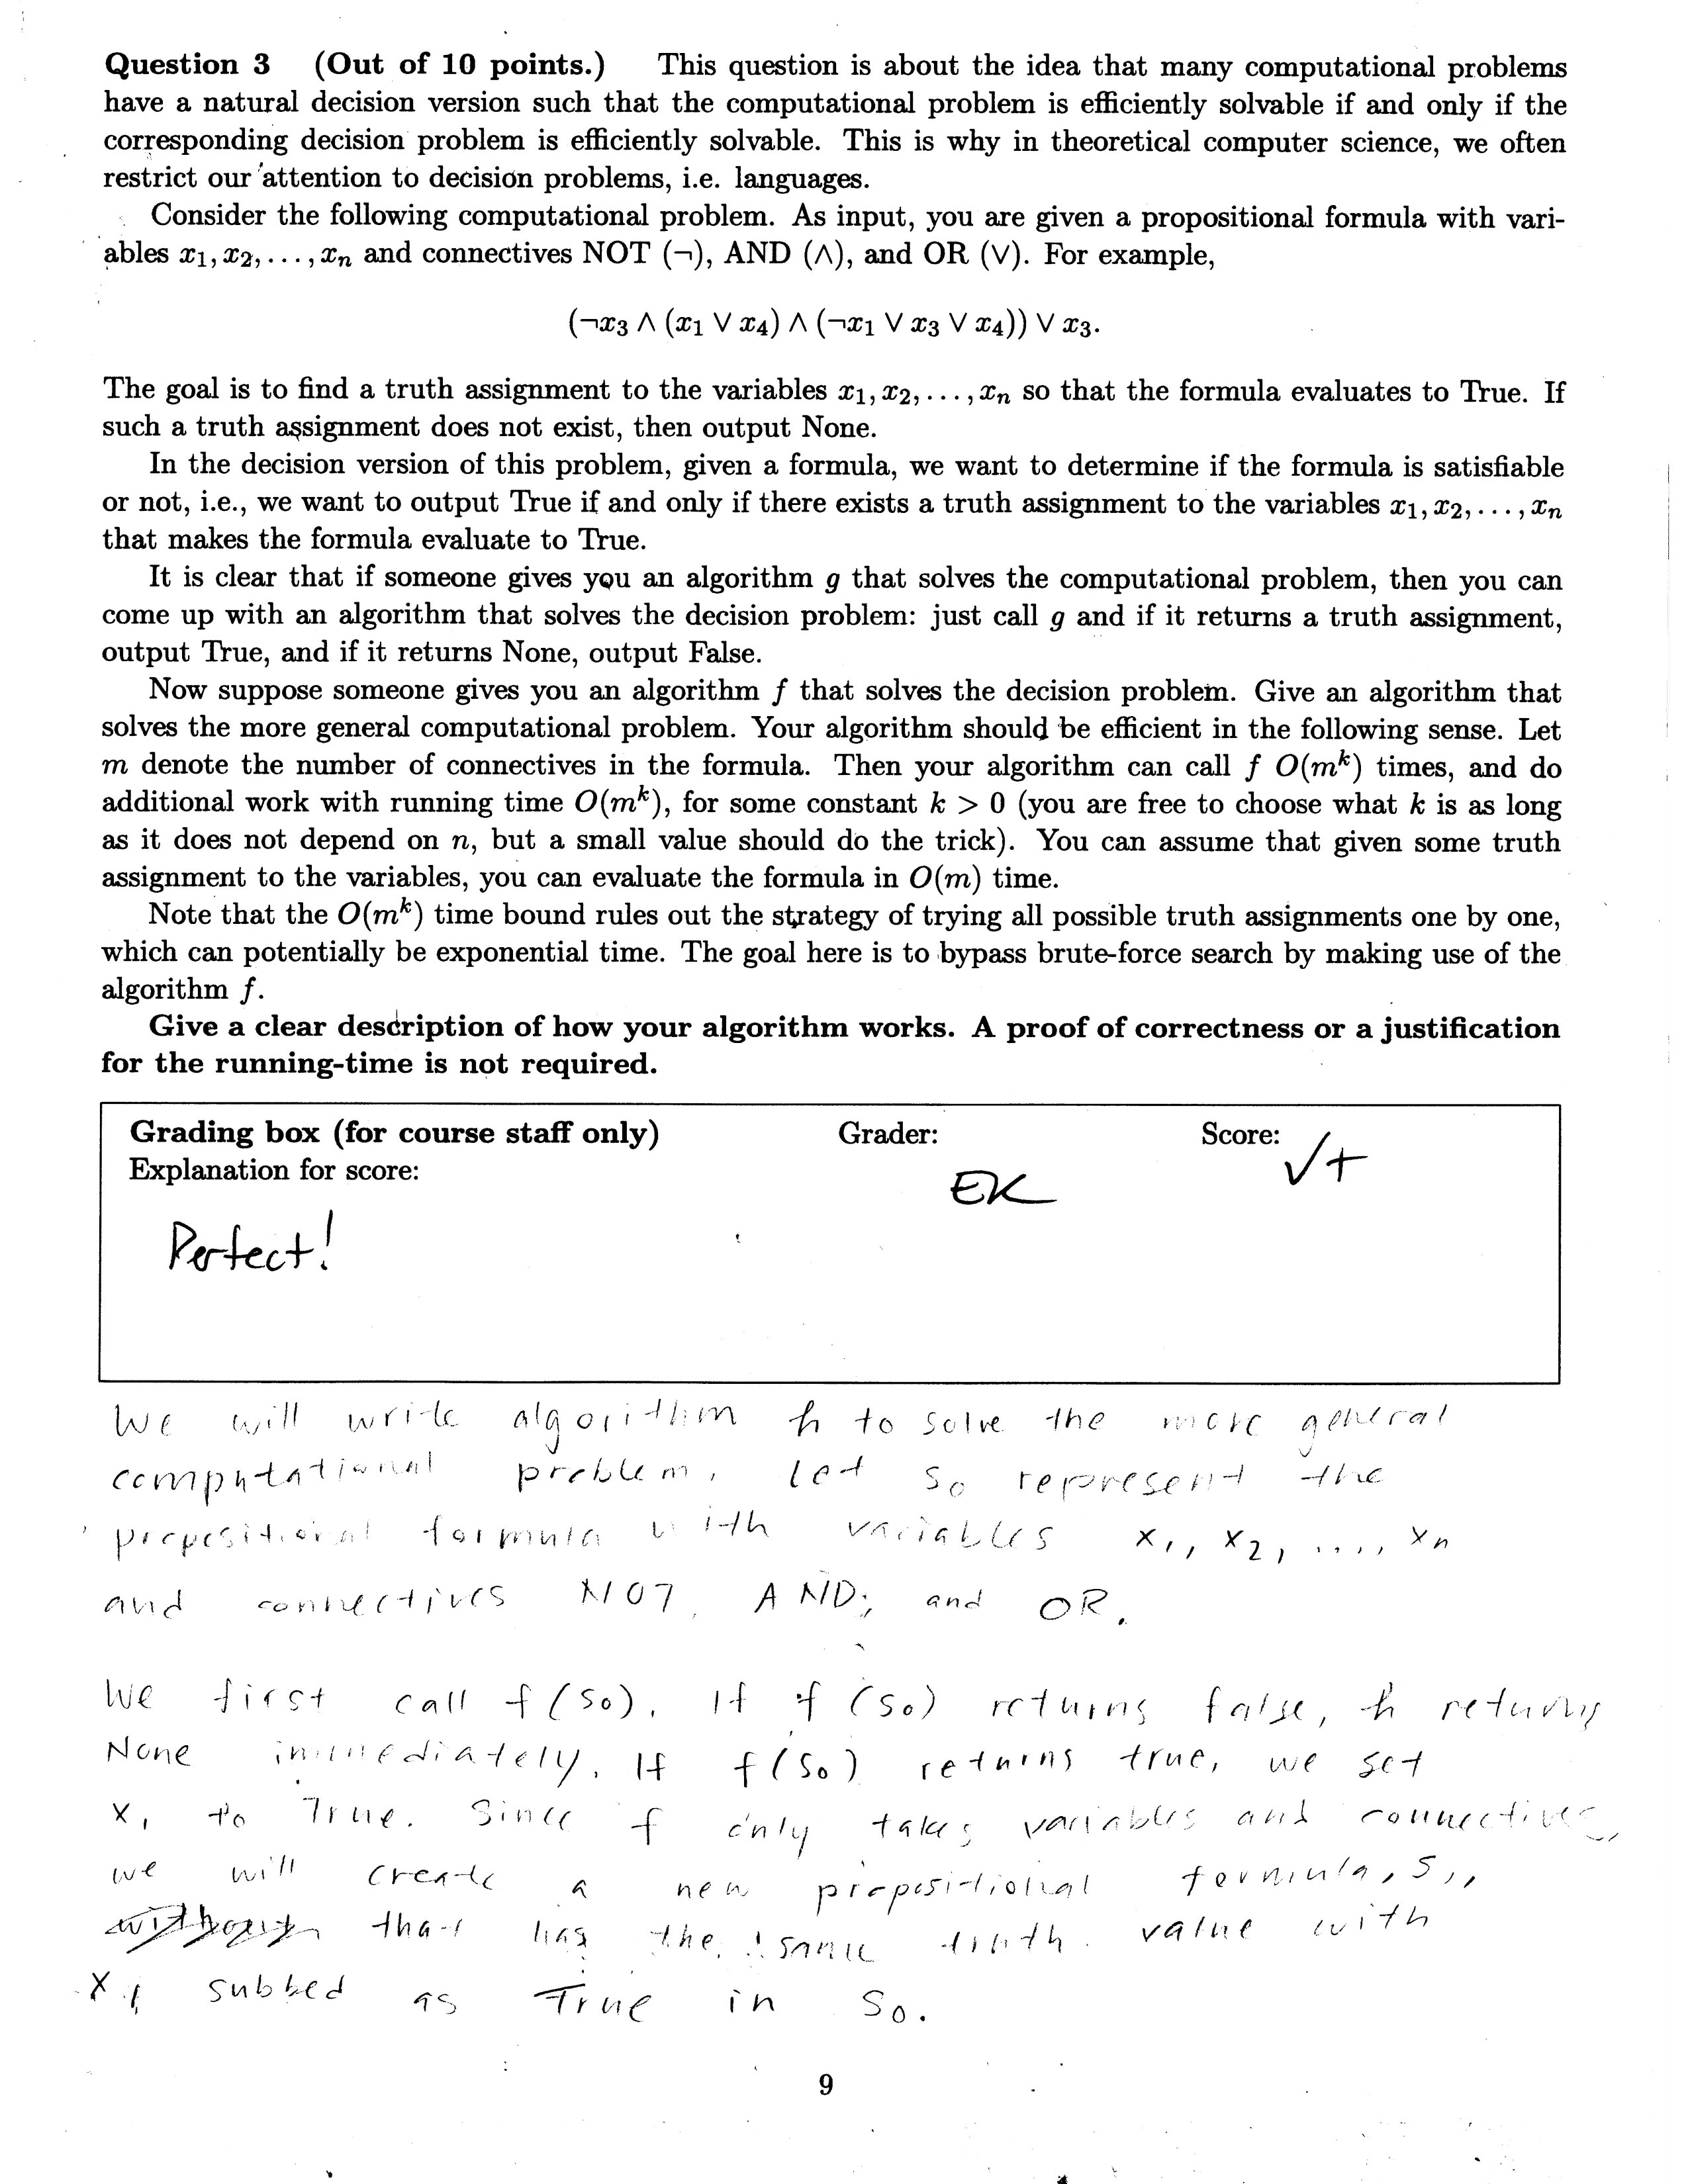 Question 3 (Out of 10 points.) This question is about the idea that many computational problems
have a natural decision version such that the computational problem is efficiently solvable if and only if the
corresponding decision problem is efficiently solvable. This is why in theoretical computer science, we often
restrict our attention to decision problems, i.e. languages.
Consider the following computational problem. As input, you are given a propositional formula with vari-
ables x₁, x₂, . . . , xₙ and connectives NOT (¬), AND (∧), and OR (∨). For example,
(¬x₃ ∧ (x₁ ∨ x₄) ∧ (¬x₁ ∨ x₃ ∨ x₄)) ∨ x₃.
The goal is to find a truth assignment to the variables x₁, x₂, . . . , xₙ so that the formula evaluates to True. If
such a truth assignment does not exist, then output None.
In the decision version of this problem, given a formula, we want to determine if the formula is satisfiable
or not, i.e., we want to output True if and only if there exists a truth assignment to the variables x₁, x₂, . . . , xₙ
that makes the formula evaluate to True.
It is clear that if someone gives you an algorithm g that solves the computational problem, then you can
come up with an algorithm that solves the decision problem: just call g and if it returns a truth assignment,
output True, and if it returns None, output False.
Now suppose someone gives you an algorithm f that solves the decision problem. Give an algorithm that
solves the more general computational problem. Your algorithm should be efficient in the following sense. Let
m denote the number of connectives in the formula. Then your algorithm can call f O(mᵏ) times, and do
additional work with running time O(mᵏ), for some constant k > 0 (you are free to choose what k is as long
as it does not depend on n, but a small value should do the trick). You can assume that given some truth
assignment to the variables, you can evaluate the formula in O(m) time.
Note that the O(mᵏ) time bound rules out the strategy of trying all possible truth assignments one by one,
which can potentially be exponential time. The goal here is to bypass brute-force search by making use of the
algorithm f.
Give a clear description of how your algorithm works. A proof of correctness or a justification
for the running-time is not required.
Grading box (for course staff only) Grader: Score: √+
Explanation for score:
EK
Perfect!
We will write algorithm h to solve the more general
computational problem, let s₀ represent the
propositional formula with variables x₁, x₂, ...., xₙ
and connectives NOT, AND, and OR.
We first call f(s₀). If f(s₀) returns false, h returns
None immediately. If f(s₀) returns true, we set
x₁ to True. Since f only takes variables and connectives,
we will create a new propositional formula, s₁,
that has the same truth value with
x₁ subbed as True in s₀.
9